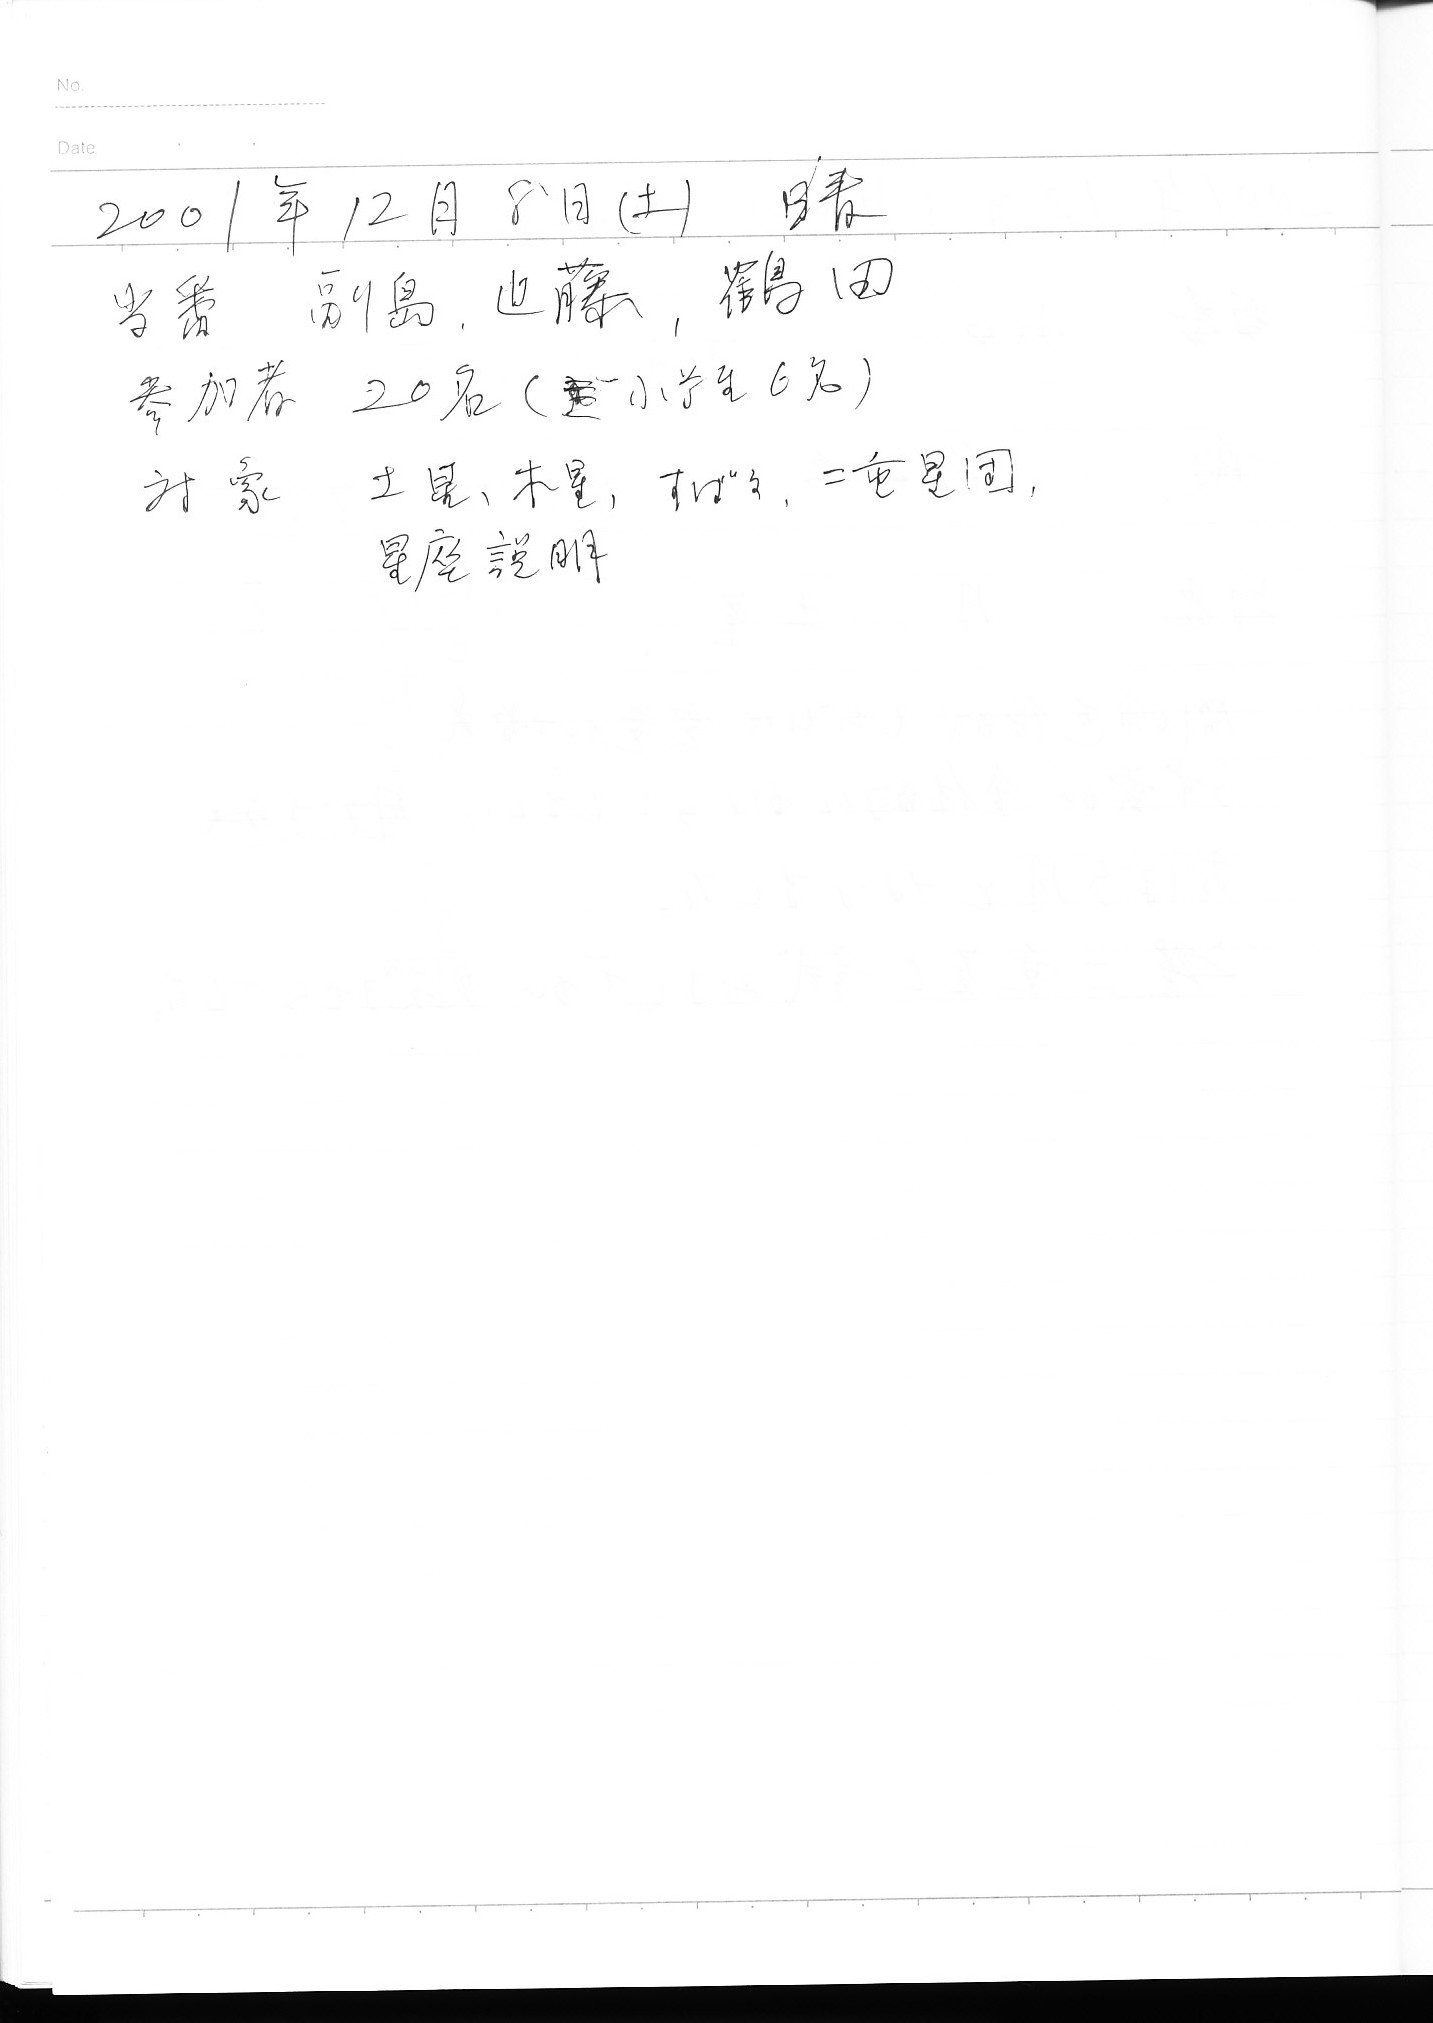 No.
Date
2001年12月8日(土) 晴
当番 副島, 近藤, 鶴田
参加者 20名(小学生6名)
対象 土星、木星, すばる, 二重星団,
星座説明